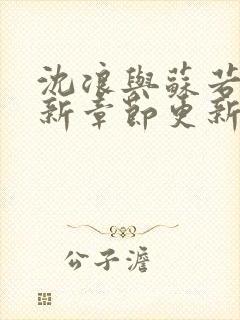 沈浪與蘇若
新章節更新
公子澹